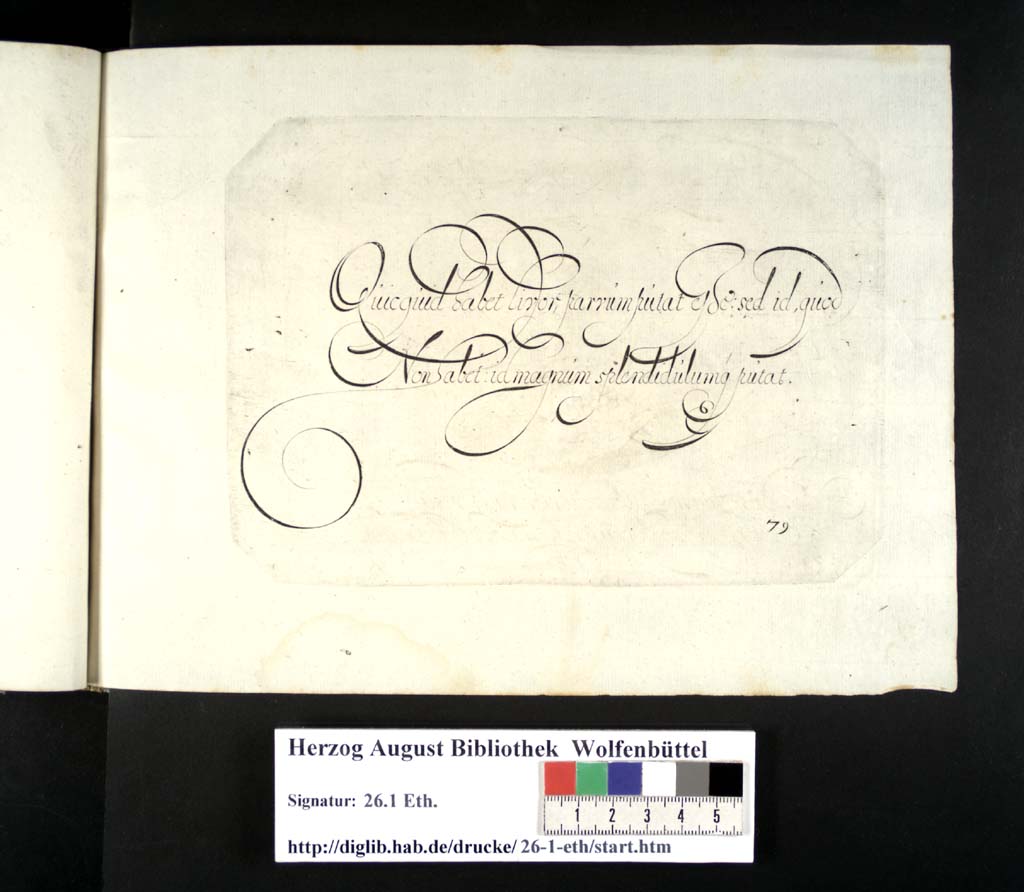 Quicquid habet livor, parvum putat esse: sed id, quod
Non habet: id magnum splendidulumq́ putat.
79
Herzog August Bibliothek Wolfenbüttel
Signatur: 26.1 Eth.
1 2 3 4 5
http://diglib.hab.de/drucke/ 26-1-eth/start.htm